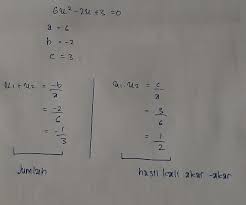 6x² - 2x + 3 = 0
a = 6
b = -2
c = 3
x₁ + x₂ = -b/a
= -2/6
= -1/3
Jumlah
x₁ . x₂ = c/a
= 3/6
= 1/2
hasil kali akar-akar